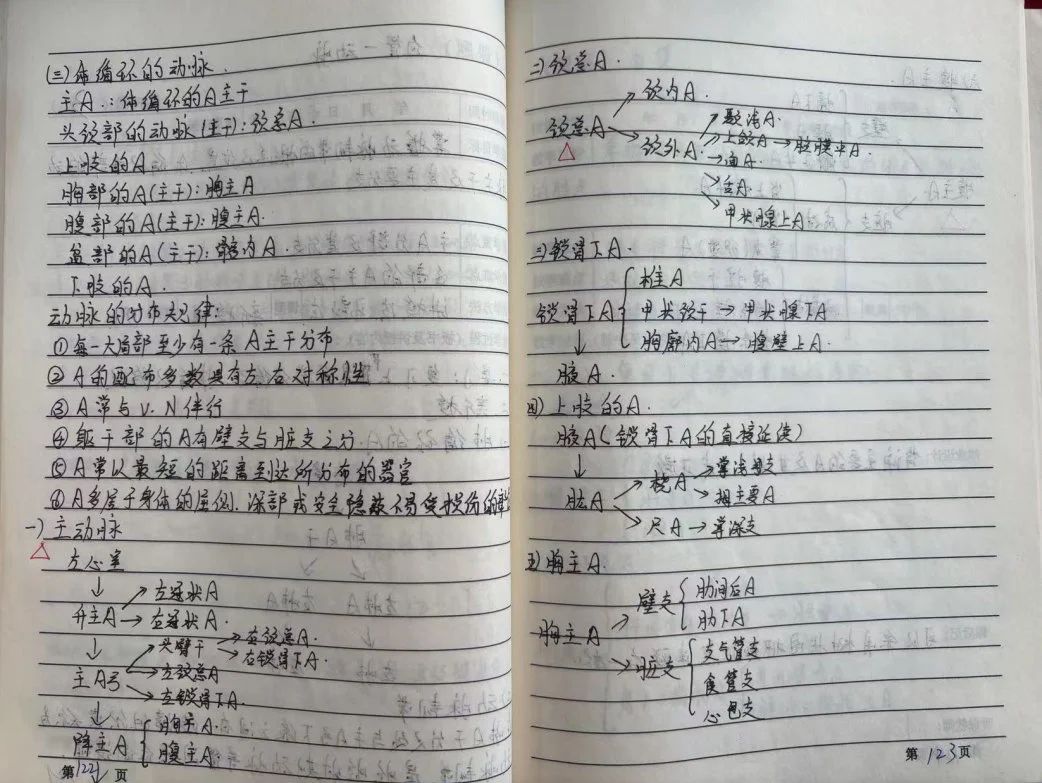 (三)体循环的动脉.
主A.:体循环的A主干
头颈部的动脉(主干):颈总A.
上肢的A.
胸部的A(主干):胸主A
腹部的A(主干):腹主A.
盆部的A(主干):髂内A.
下肢的A.
动脉的分布规律:
①每一大局部至少有一条A主干分布
②A的配布多数具有左、右对称性
③A常与V.N伴行
④躯干部的A有壁支与脏支之分
⑤A常以最短的距离到达所分布的器官
⑥A多居于身体的屈侧.深部或安全隐蔽不易受损伤的
一)主动脉
△
左心室
↓
升主A→左冠状A
→左冠状A.
↓ 头臂干→右颈总A.
→右锁骨下A.
主A弓→左颈总A
→左锁骨下A.
↓
降主A{胸主A.
腹主A.
第122页
二)颈总A.
颈内A.
颈总A→
△
颈外A→颞浅A.
→上颌A→脑膜中A.
→面A.
→舌A.
→甲状腺上A.
三)锁骨下A.
锁骨下A{椎A
甲状颈干→甲状腺下A
胸廓内A→腹壁上A.
↓
腋A.
四)上肢的A.
腋A(锁骨下A的直接延续)
↓
肱A→桡A→掌浅支
→拇主要A
→尺A→掌深支
五)胸主A.
胸主A→壁支{肋间后A
肋下A
→脏支{支气管支
食管支
心包支
第123页